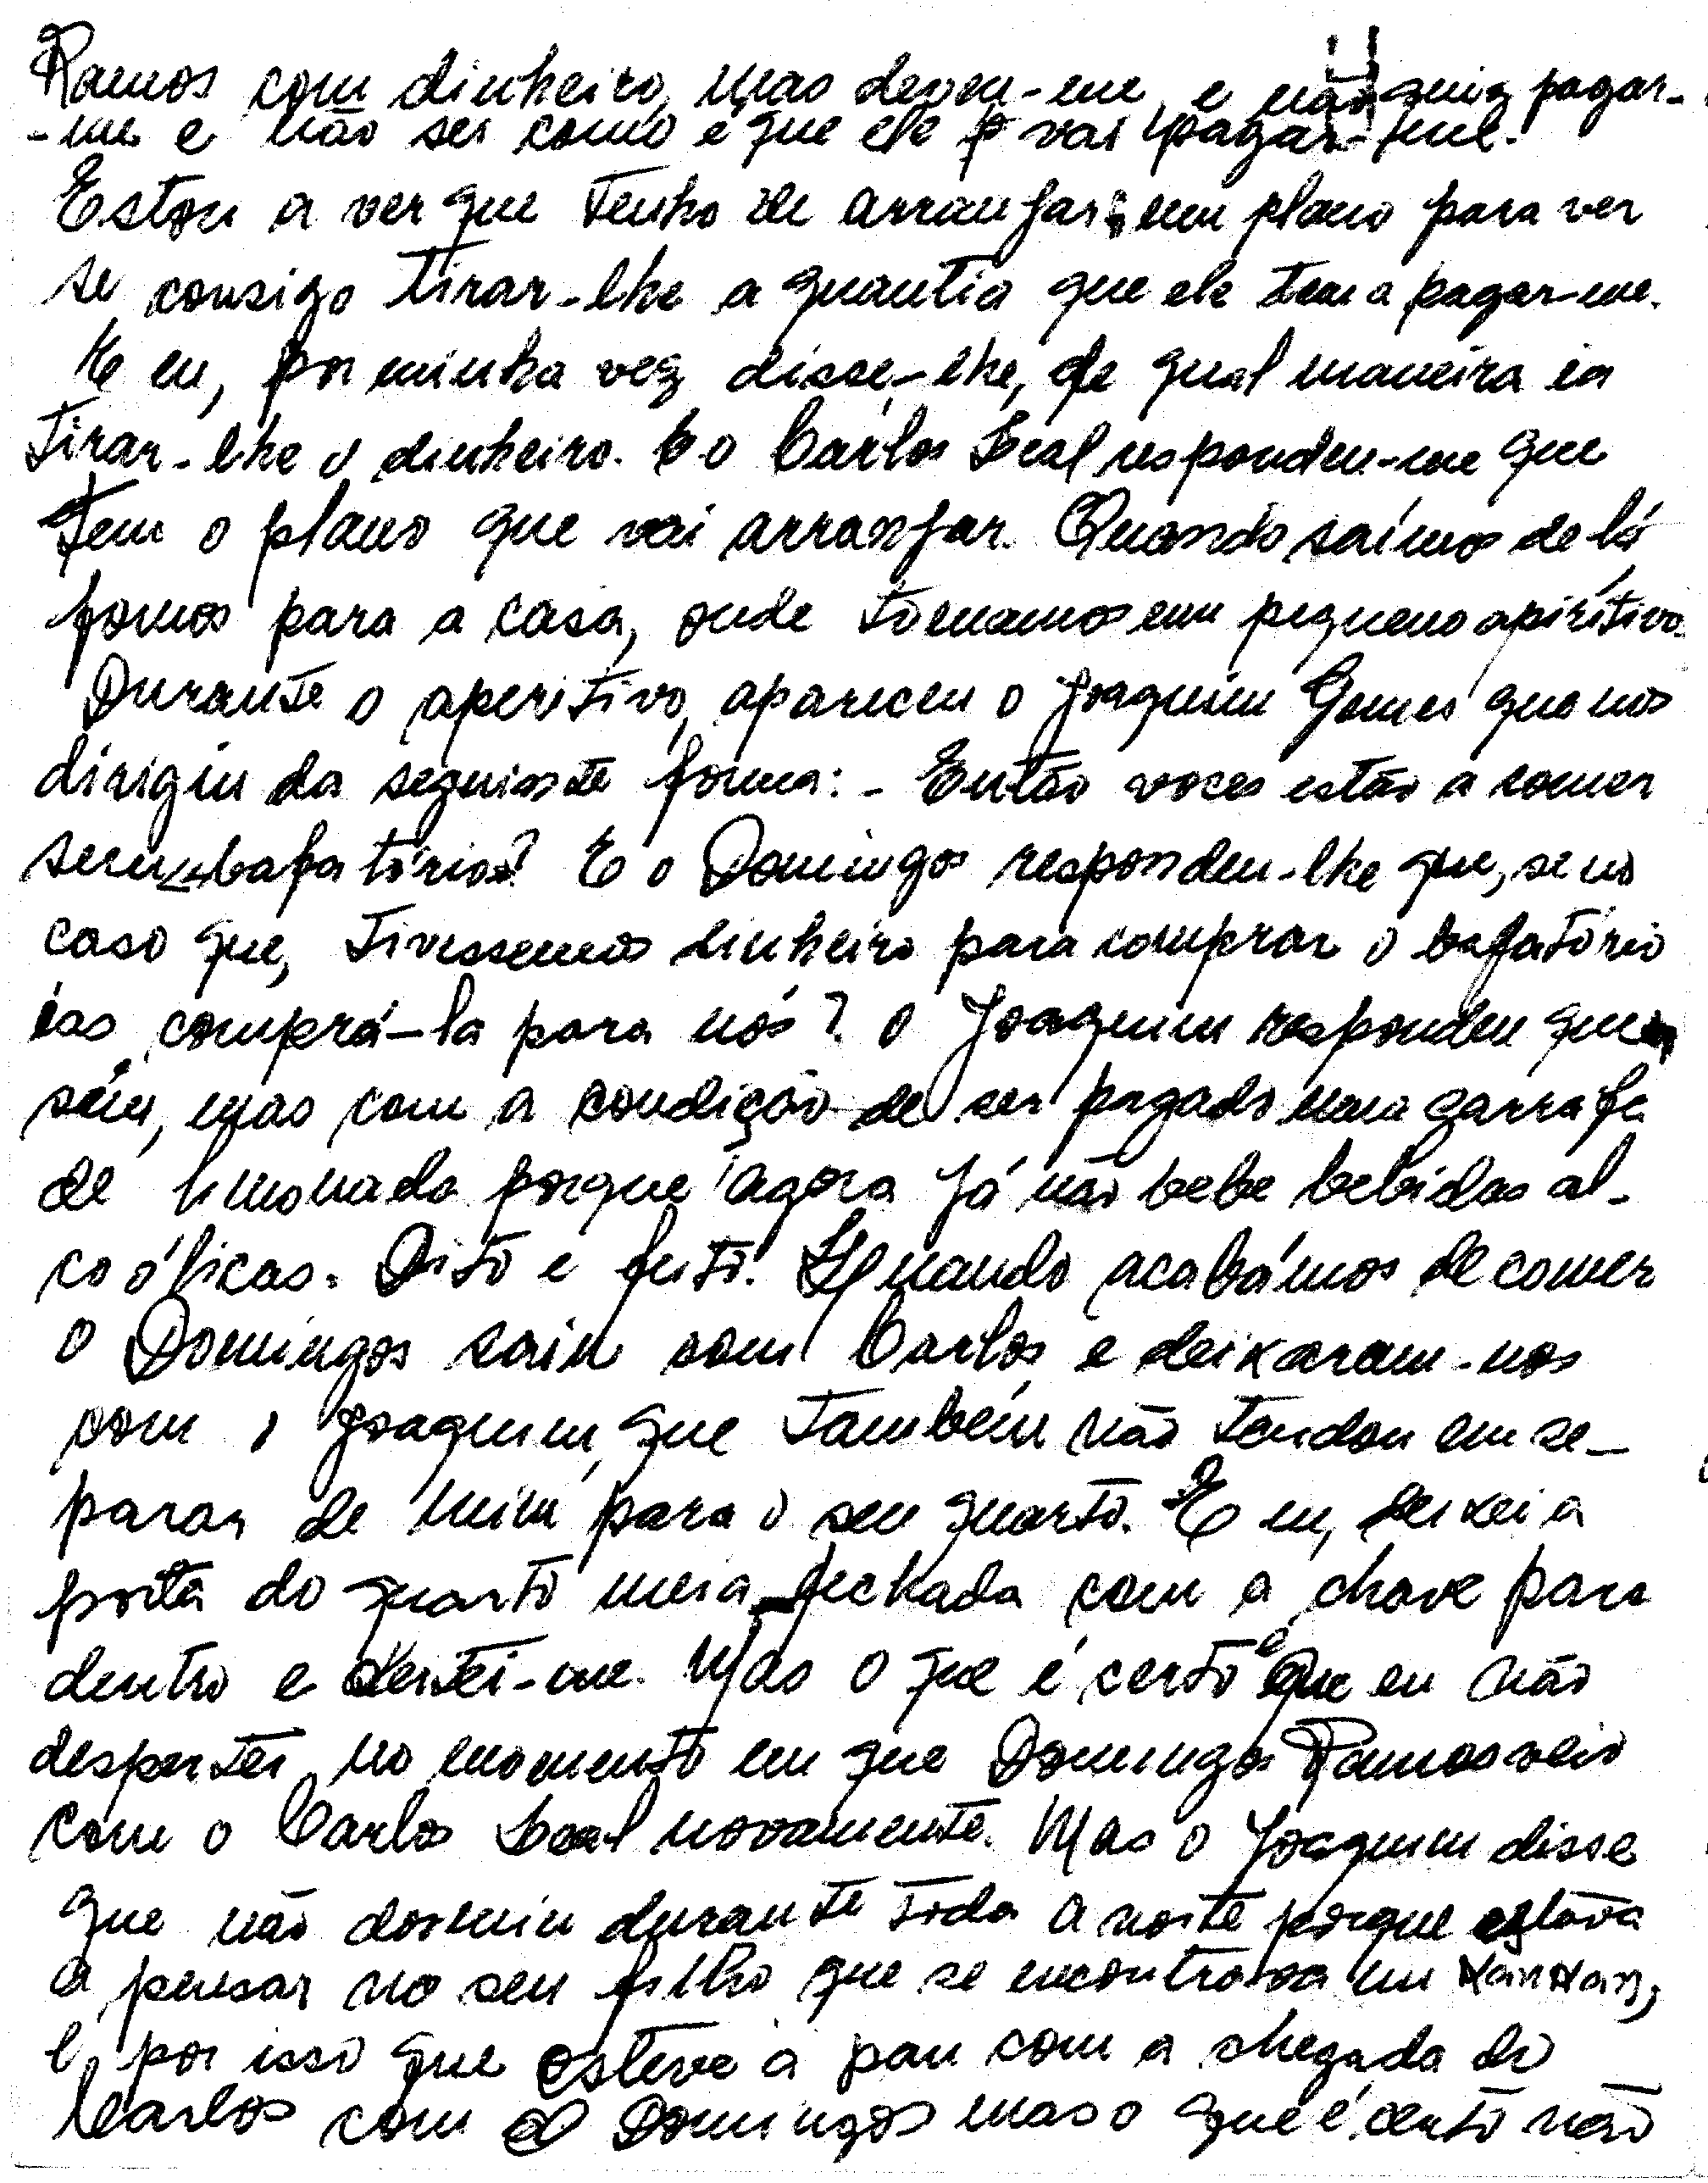 Ramos com dinheiro, mas deven-me, e não quiz pagar-
-me e não sei como é que ele vai pagar-me.
Estou a ver que tenho de arranjar um plano para ver
se consigo tirar-lhe a quantia que ele tem a pagar-me.
E eu, por minha vez disse-lhe, de qual maneira ia
tirar-lhe o dinheiro. E o Carlos Leal respondeu-me que
tem o plano que vai arranjar. Quando saímos de lá
fomos para a casa, onde tomamos um pequeno apirítivo.
Durante o aperitivo, apareceu o Joaquim Gomes que nos
dirigiu da seguinte forma: - Então voces estão a comer
sem bafatório? E o Domingos respondeu-lhe que, se no
caso que, tivessemos dinheiro para comprar o bafatório
ias comprá-la para nós? O Joaquim respondeu que
sim, mas com a condição de ser pagado uma garrafa
de limonada porque agora já não bebe bebidas al-
coólicas. Dito e feito! Quando acabámos de comer
o Domingos saiu com Carlos e deixaram-nos
com o Joaquim, que também não tardou em se-
parar de mim para o seu quarto. E eu, deixei a
porta do quarto meia fechada com a chave para
dentro e deitei-me. Mas o que é certo é que eu não
despertei no momento em que Domingos Ramos veio
com o Carlos Leal novamente. Mas o Joaquim disse
que não dormiu durante toda a noite porque estava
a pensar no seu filho que se encontrava em
é por isso que esteve a pau com a chegada do
Carlos com o Domingos mas o que é certo não